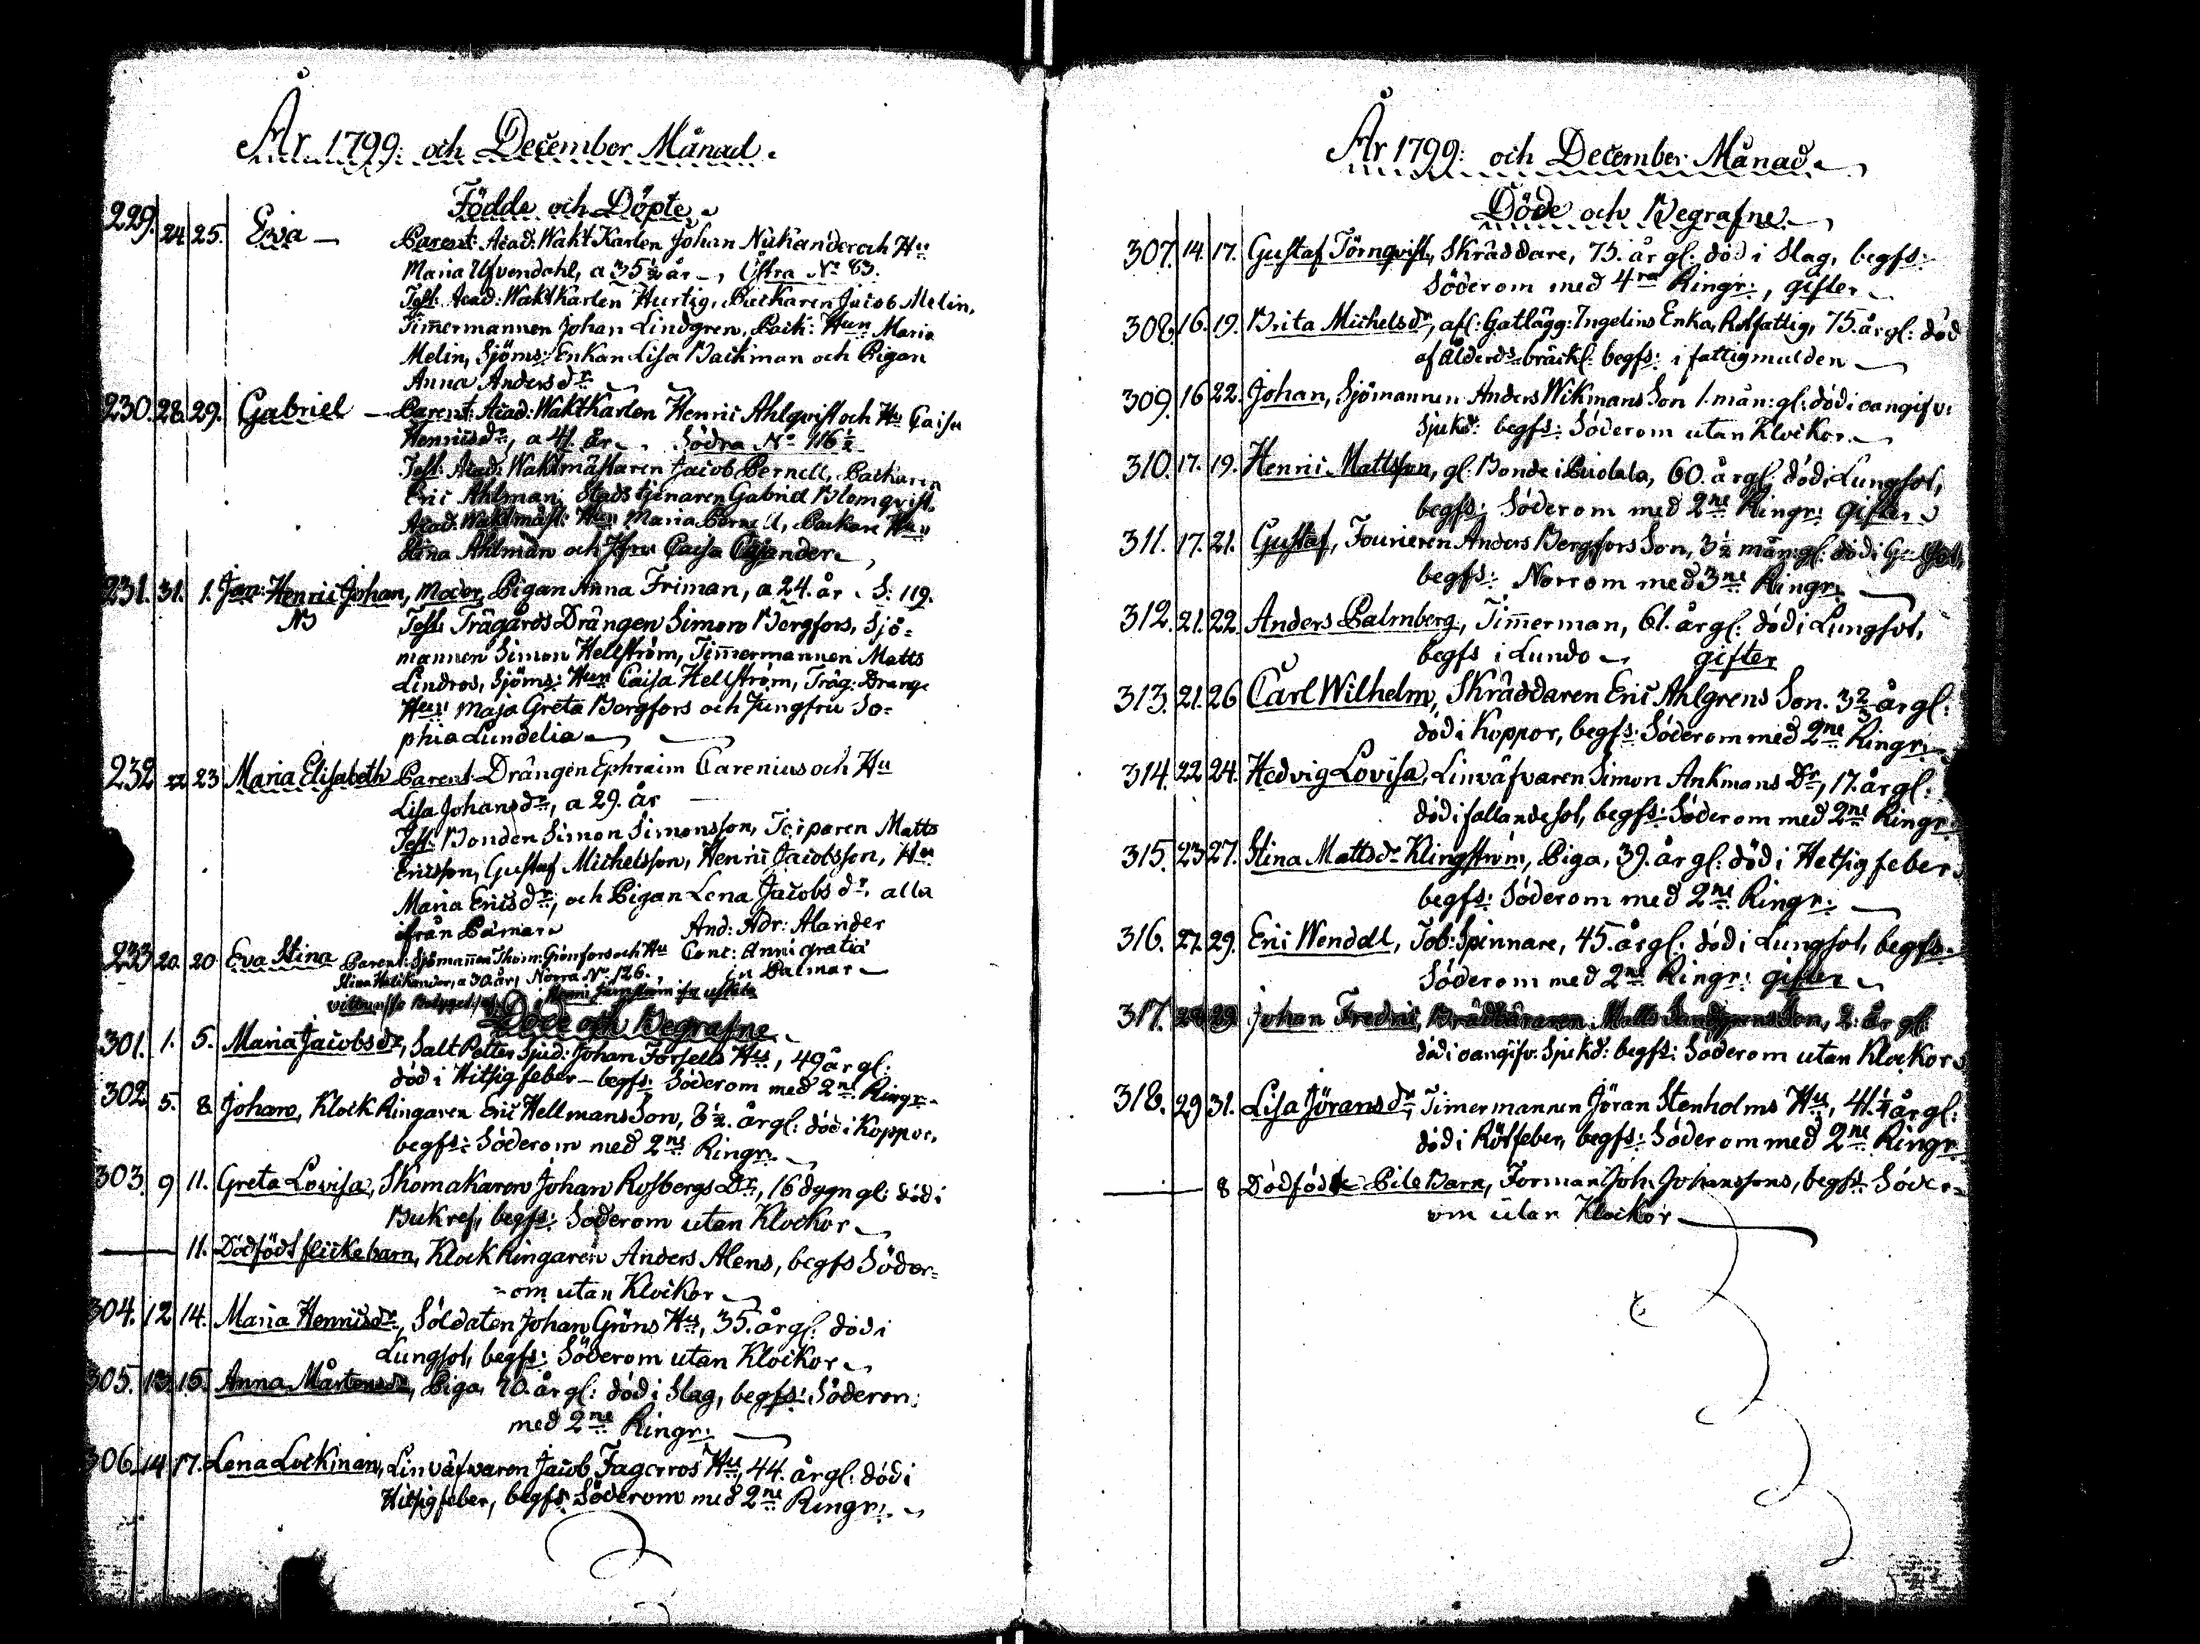 År 1799: och December Månad.
Födde och Döpte
229. 24 25. Eva — Parent: Acad: Wakt Karlen Johan Nükander och Hu
Maria Ufvendahl, a 35½ år, Östra No 83.
Test: Acad: Wakt Karlen Hurtig, Backaren Jacob Melin,
Timmermannen Johan Lindgren, Back: Hun Maria
Melin, Sjöms: Enkan Lisa Backman och Pigan
Anna Andersdr
230. 28. 29. Gabriel — Parent: Acad: Wakt Karlen Henric Ahlqvist och Hu Caisa
Henricsdr, a 41. år. Södra No 116½
Test: Acad: Waktmästaren Jacob Pernell, Backaren
Eric Ahlman, Stadstjenaren Gabriel Blomqvist,
Acad: Waktmäst: Hun Maria Pernell, Backare Hun
Stina Ahlman och Jfru Caisa Cajander
231. 31. 1. Jan: Henric Johan, Moder, Pigan Anna Friman, a 24. år. S: 119.
Test: Trägårds Drängen Simon Bergfors, Sjö=
mannen Simon Hellström, Timmermannen Matts
Lindros, Sjöms: Hun Caisa Hellström, Träg: Drang
Hun Maja Greta Bergfors och Jungfru So=
phia Lundelia
232 22 23 Maria Elisabeth Parent: Drängen Ephraim Carenius och Hu
Lisa Johansdr, a 29. år
Test: Bonden Simon Simonsson, Matts
Ericsson, Gustaf Michelsson, Henric Jacobsson, Hu
Maria Ericsdr, och Pigan Lena Jacobsdr. alla
ifrån Pamar
And: Adr: Alander
233 20. 20 Eva Stina Parent: Sjömannen Thom: Grönfors och Hu Conc: Anni gratiæ
Stina, a 30. år, Norra No 126. in Palmar
Döde och Begrafne
301. 1. 5. Maria Jacobsdr, Salt Petter Sjud: Johan Forsells Hu, 49 år gl:
död i Hitsig feber — begfs: Söderom med 2ne Ringr
302 5. 8 Johan, Klock Ringaren Eric Hellmans Son, 8½. år gl: död i Koppor,
begfs: Söderom med 2ne Ringr
303. 9 11. Greta Lovisa, Skomakaren Johan Rosbergs Dr, 16 dygn gl: död i
Bukref, begfs: Söderom utan Klockor
— 11. Dödfödt flickebarn, Klock Ringaren Anders Alens, begfs Söder=
=om utan Klockor
304. 12 14. Maria Henricsdr, Soldaten Johan Gröns Hu, 35. år gl: död i
Lungsot, begfs: Söderom utan Klockor
305. 13 15. Anna Mårtensdr, Piga, 70. år gl: död i Slag, begfs: Söderom
med 2ne Ringr:
306. 14 17. Lena Lockman, Linväfvaren Jacob Fagerros Hu, 44. år gl: död i
Hitsig feber, begfs: Söderom med 2ne Ringr:
År 1799: och December Månad.
Döde och Begrafne
307. 14. 17. Gustaf Törnqvist, Skräddare, 75. år gl: död i Slag, begfs:
Söderom med 4ra Ringr:, gifter
308. 16. 19. Brita Michelsdr, afl: Gatlägg: Ingelins Enka, Rotfattig, 75. år gl: död
af ålderds bräckl: begfs: i fattigmulden
309. 16 22. Johan, Sjömannen Anders Wikmans Son 1. mån: gl: död i oangifv:
Sjukd: begfs: Söderom utan Klockor
310. 17. 19. Henric Mattsson, gl. Bonde i, 60. år gl: död i Lungsot,
begfs: Söderom med 2ne Ringr: gifter
311. 17. 21. Gustaf, Fourieren Anders Bergfors Son, 3½ mån: gl: död i
begfs: Norrom med 3ne Ringr:
312. 21. 22. Anders Palmberg, Timmerman, 61. år gl: död i Lungsot,
begfs i Lundo gifter
313. 21. 26 Carl Wilhelm, Skräddaren Eric Ahlgrens Son. 3⅔ år gl:
död i Koppor, begfs: Söderom med 2ne Ringr:
314. 22 24. Hedvig Lovisa, Linväfvaren Simon Ankmans Dr, 17. år gl:
död i fallandesot, begfs: Söderom med 2ne Ringr
315. 23 27. Stina Mattsdr Klingström, Piga, 39. år gl: död i Hetsig feber
begfs: Söderom med 2ne Ringr:
316. 27. 29. Eric Wendell, Tob: Spinnare, 45. år gl: död i Lungsot, begfs:
Söderom med 2ne Ringr: gifter
317. 28 29 Johan Fredric, Matts Son, 2. år gl
död i oangifv: Sjukd: begfs: Söderom utan Klockor
318. 29 31. Lisa Jöransdr, Timermannen Jöran Stenholms Hu, 41.¼ år gl:
död i Rötfeber, begfs: Söderom med 2ne Ringr
— 8 Dödfödt Pilebarn, Forman Joh: Johanssons, begfs: Söder=
om utan Klockor